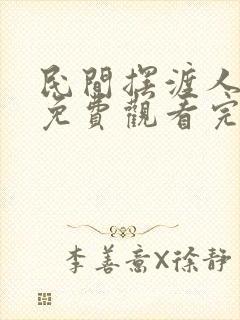 民間摆渡人
免費觀看完
李善斋X徐靜